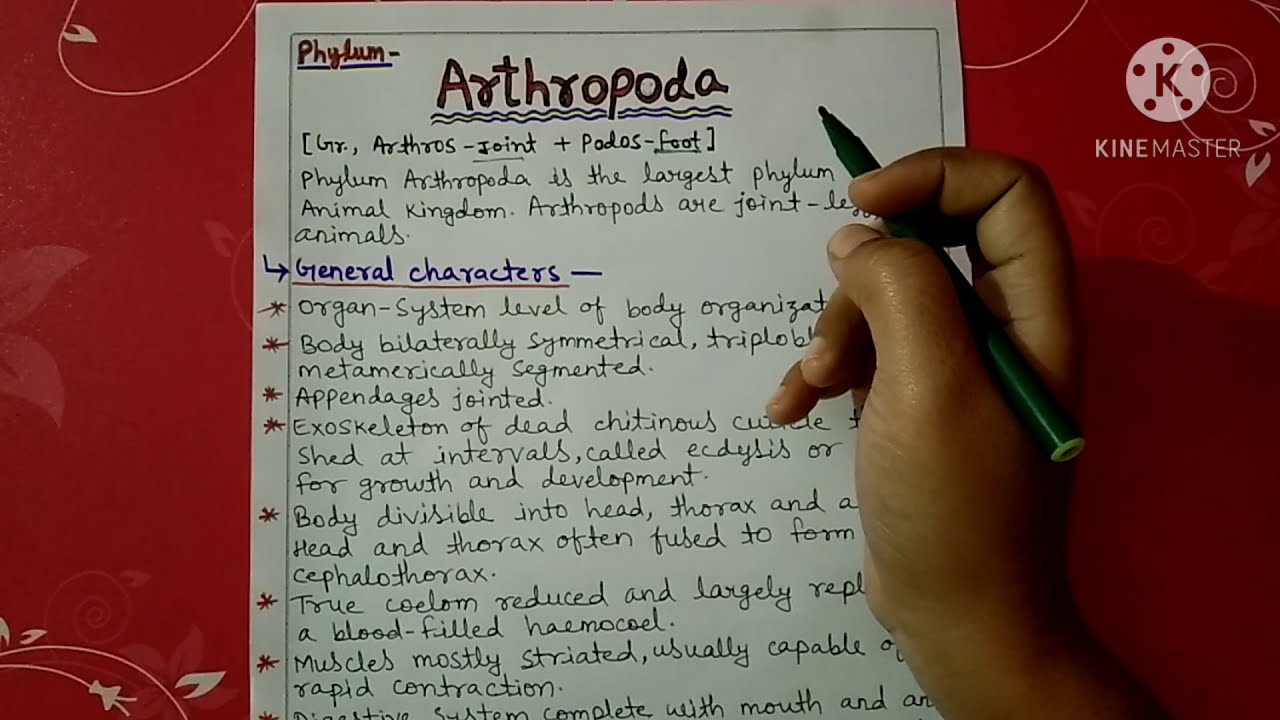 Phylum-
Arthropoda
[Gr., Arthros-Joint + Podos-foot]
Phylum Arthropoda is the largest phylum
Animal Kingdom. Arthropods are joint-
animals.
↳ General characters —
* Organ-System level of body
* Body bilaterally symmetrical,
metamerically segmented.
* Appendages jointed.
* Exoskeleton of dead chitinous
shed at intervals, called ecdysis or
for growth and development.
* Body divisible into head, thorax and
Head and thorax often fused to form
cephalothorax.
* True coelom reduced and largely
a blood-filled haemocoel.
* Muscles mostly striated, usually capable
rapid contraction.
* Digestive system complete with mouth and
K
KINEMASTER